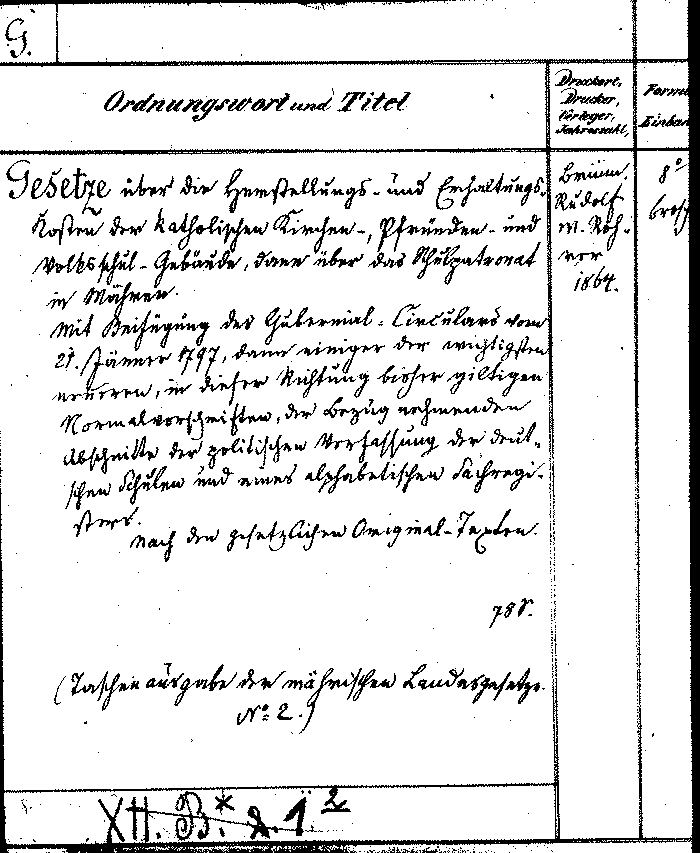 G.
Ordnungswort und Titel
Druckort,
Drucker,
Verleger,
Jahreszahl,
Format
Einban
Gesetze über die Herstellungs- und Erhaltungs-
Kosten der katholischen Kirchen-, Pfründen- und
Volksschul-Gebäude, dann über das Schulpatronat
in Mähren.
Mit Beifügung des Gubernial-Circulars vom
21. Jänner 1797, dann einiger der wichtigsten
neueren, in dieser Richtung bisher giltigen
Normalvorschriften, der Bezug nehmenden
Abschnitte der politischen Verfassung der deut-
schen Schulen und eines alphabetischen Sachregi-
sters.
Nach den gesetzlichen Original-Texten.
78 S.
(Taschenausgabe der mährischen Landesgesetze.
No 2.)
Brünn.
Rudolf
M. Roh-
rer
1864.
8°
brosch
XII. B.* 2. 1 2